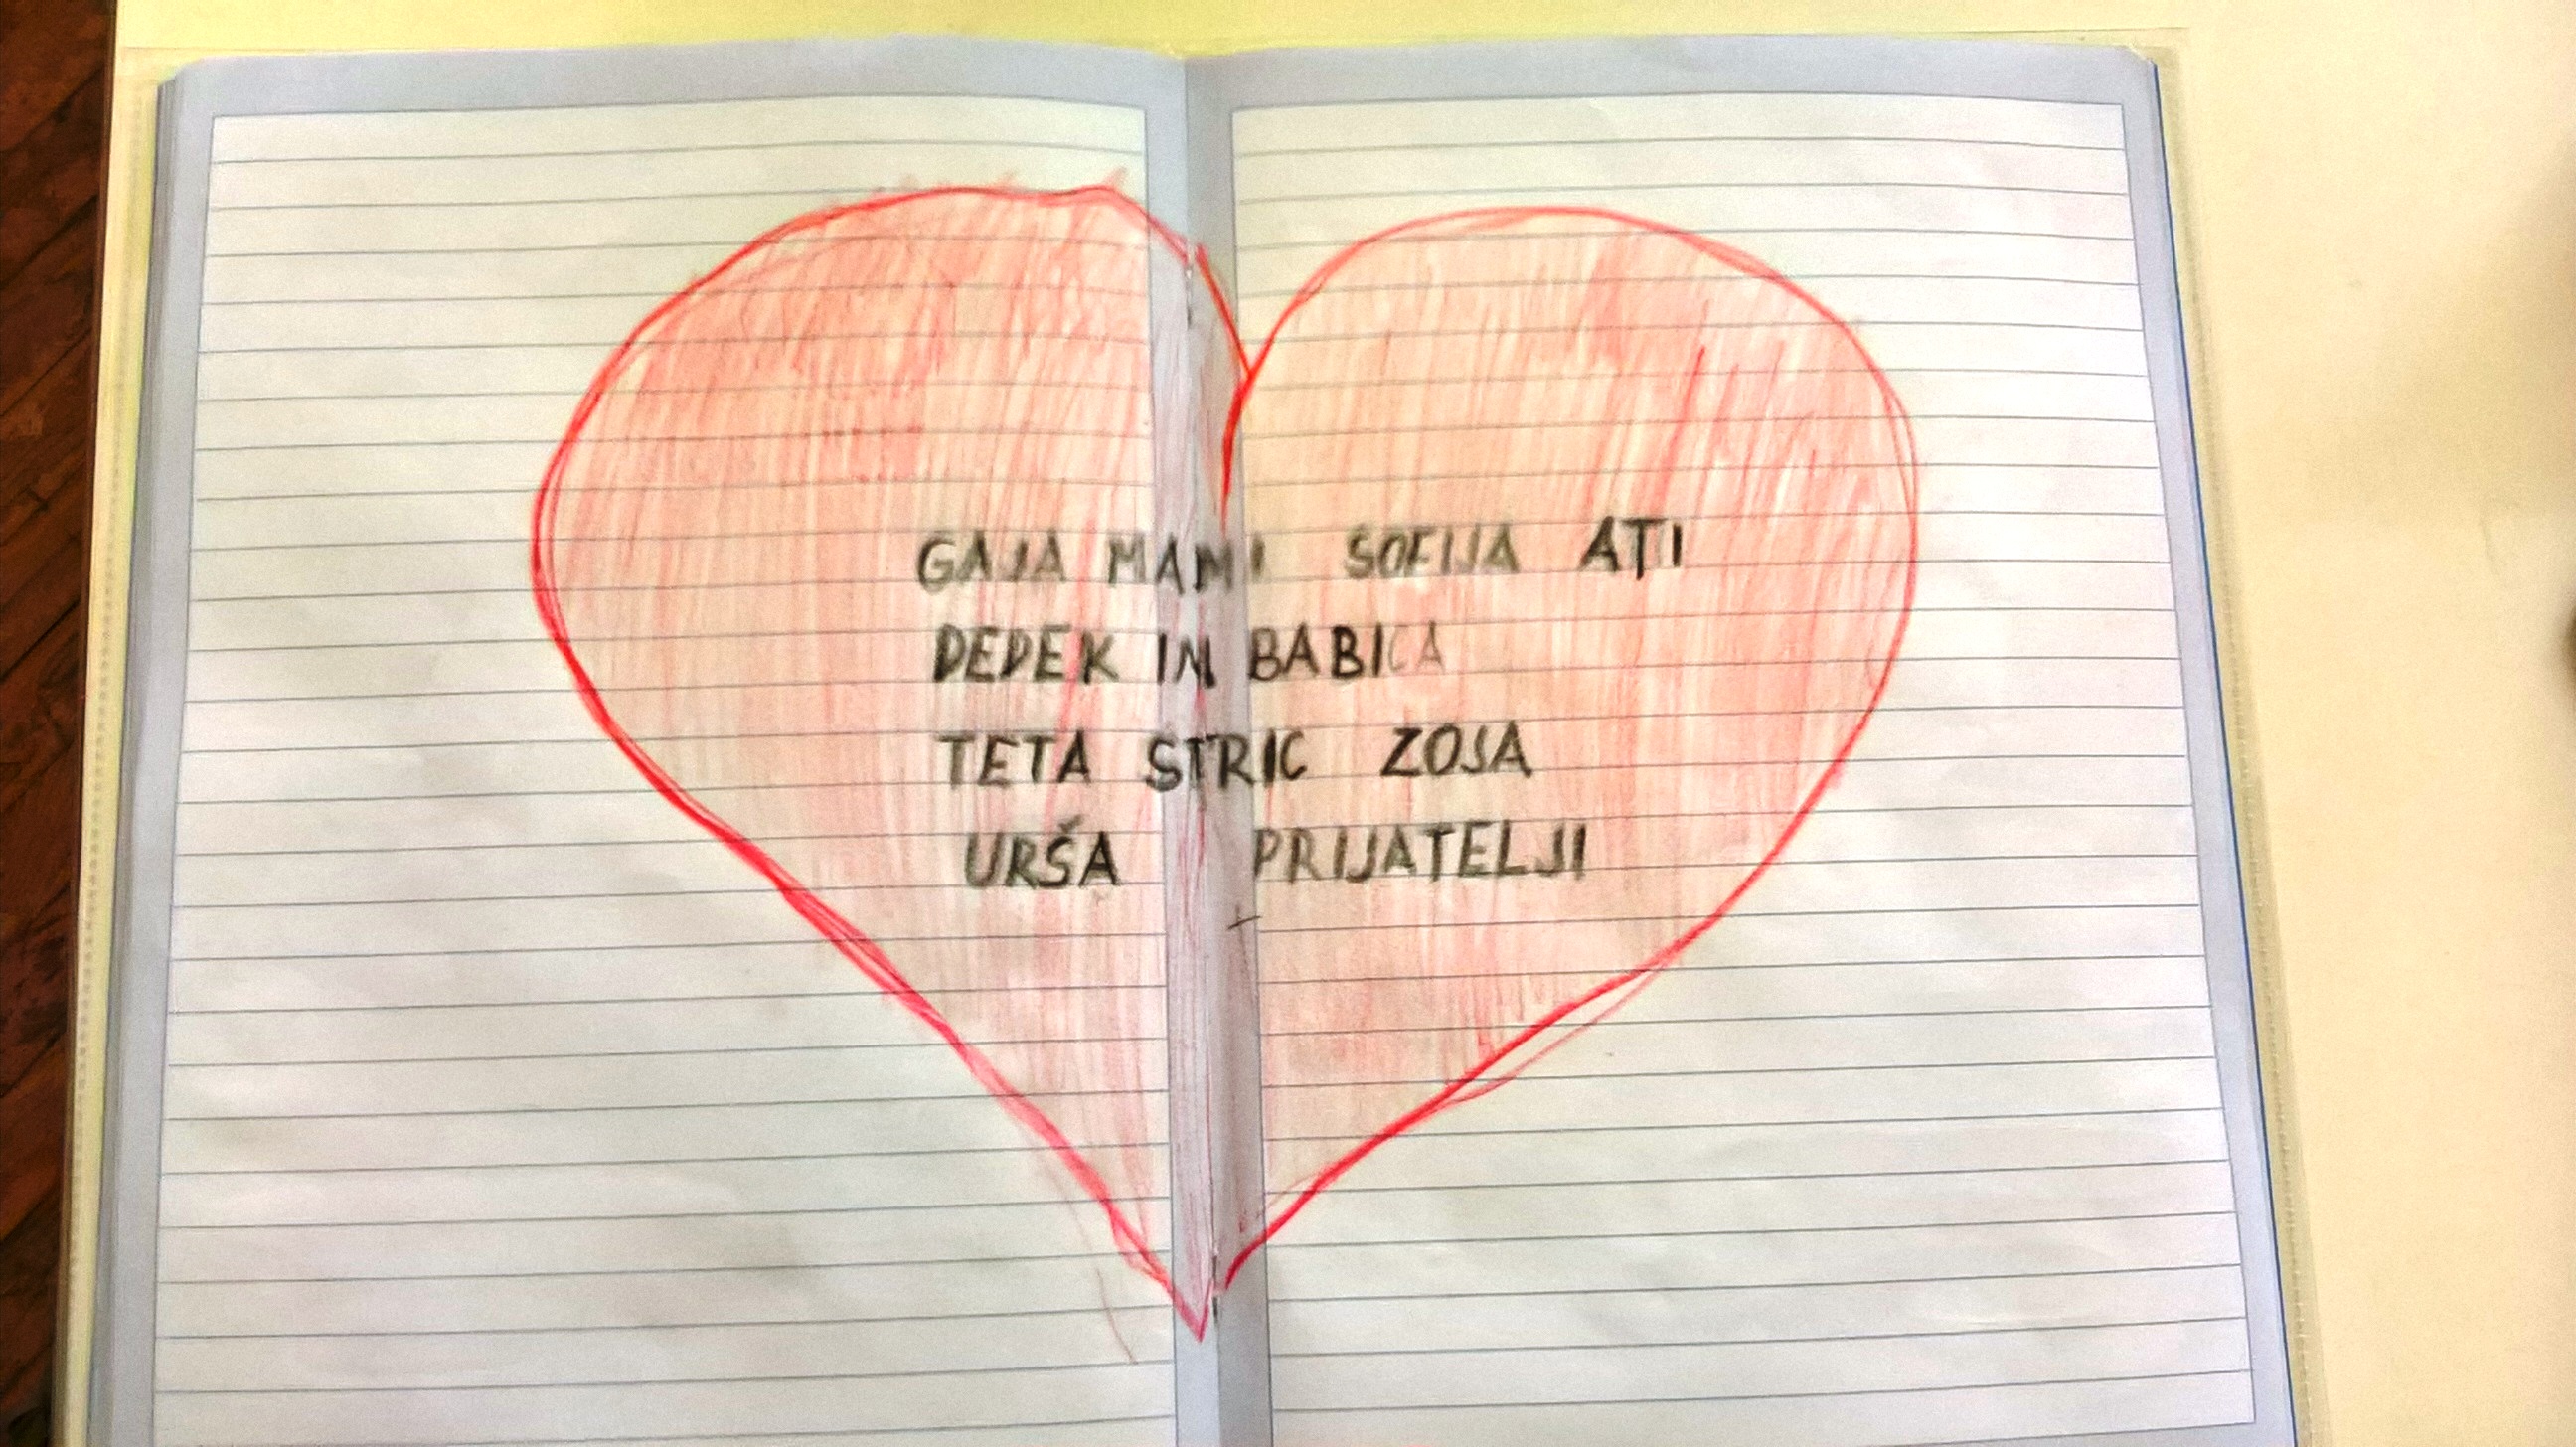 GAJA MAMI SOFIJA ATI
DEDEK IN BABICA
TETA STRIC ZOJA
URŠA PRIJATELJI